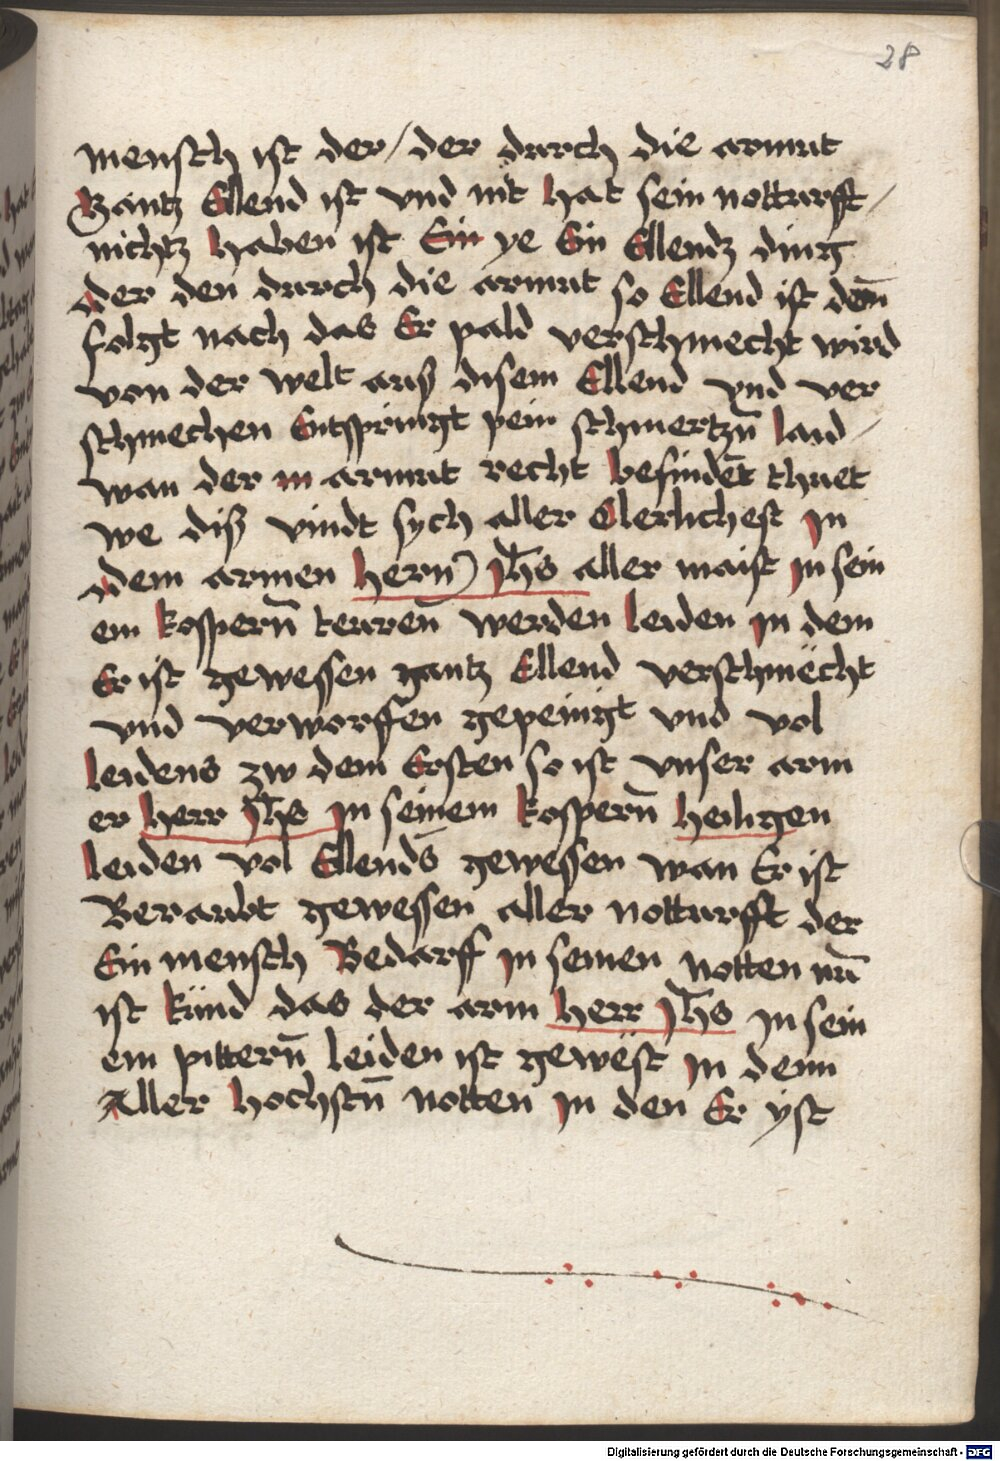 28
mensch ist der / der durch die armut
Gantz Ellend ist vnd nit hat sein notturfft /
nichtz haben ist Ein ye Ein Ellendz ding
der den durch die armut so Ellend ist dem̄
folgt nach das Er pald verschmecht wird
von der welt auß disem Ellend vnd ver
schmechen Entspringt pein schmertzn̄ laid /
wan der in armut recht befindet thuet
we diß vindt sych aller Clerlichest In
dem armen hern) Jh̄s aller maist In sein
em kospern̄ teuren̄ werden leiden In dem
Er ist gewessen gantz Ellend verschmecht
vnd verworffen gepeinigt vnd vol
leidens zw dem Ersten so ist vnser arm
er herr Jh̄s In seinem kospern̄ heiligen
leiden vol Ellends gewessen wan Er ist
Beraubt gewessen aller notturfft der
Ein mensch Bedarff In seinen notten nū
ist kund das der arm herr Jh̄s In sein
em pittern̄ leiden ist gewest In denn
Aller hochstn̄ notten In den Er yst
Digitalisierung gefördert durch die Deutsche Forschungsgemeinschaft - DFG